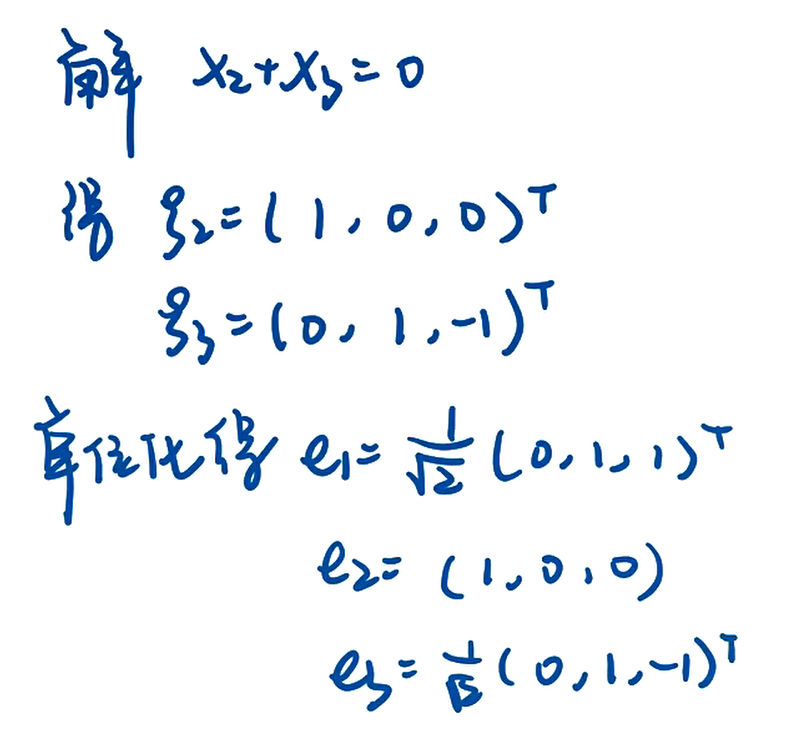 解 x₂+x₃=0
得 ξ₂=(1,0,0)ᵀ
ξ₃=(0,1,-1)ᵀ
单位化得 e₁=1/√2(0,1,1)ᵀ
e₂=(1,0,0)
e₃=1/√2(0,1,-1)ᵀ